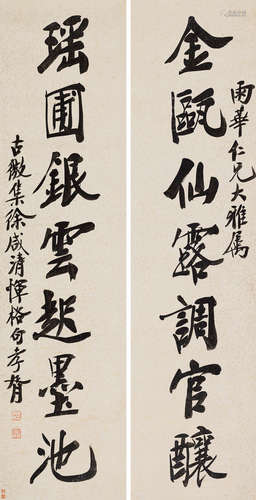 雨華仁兄大雅属
金甌仙露調官釀
瑶圃銀雲起墨池
古微集徐咸清惲格句孝臧